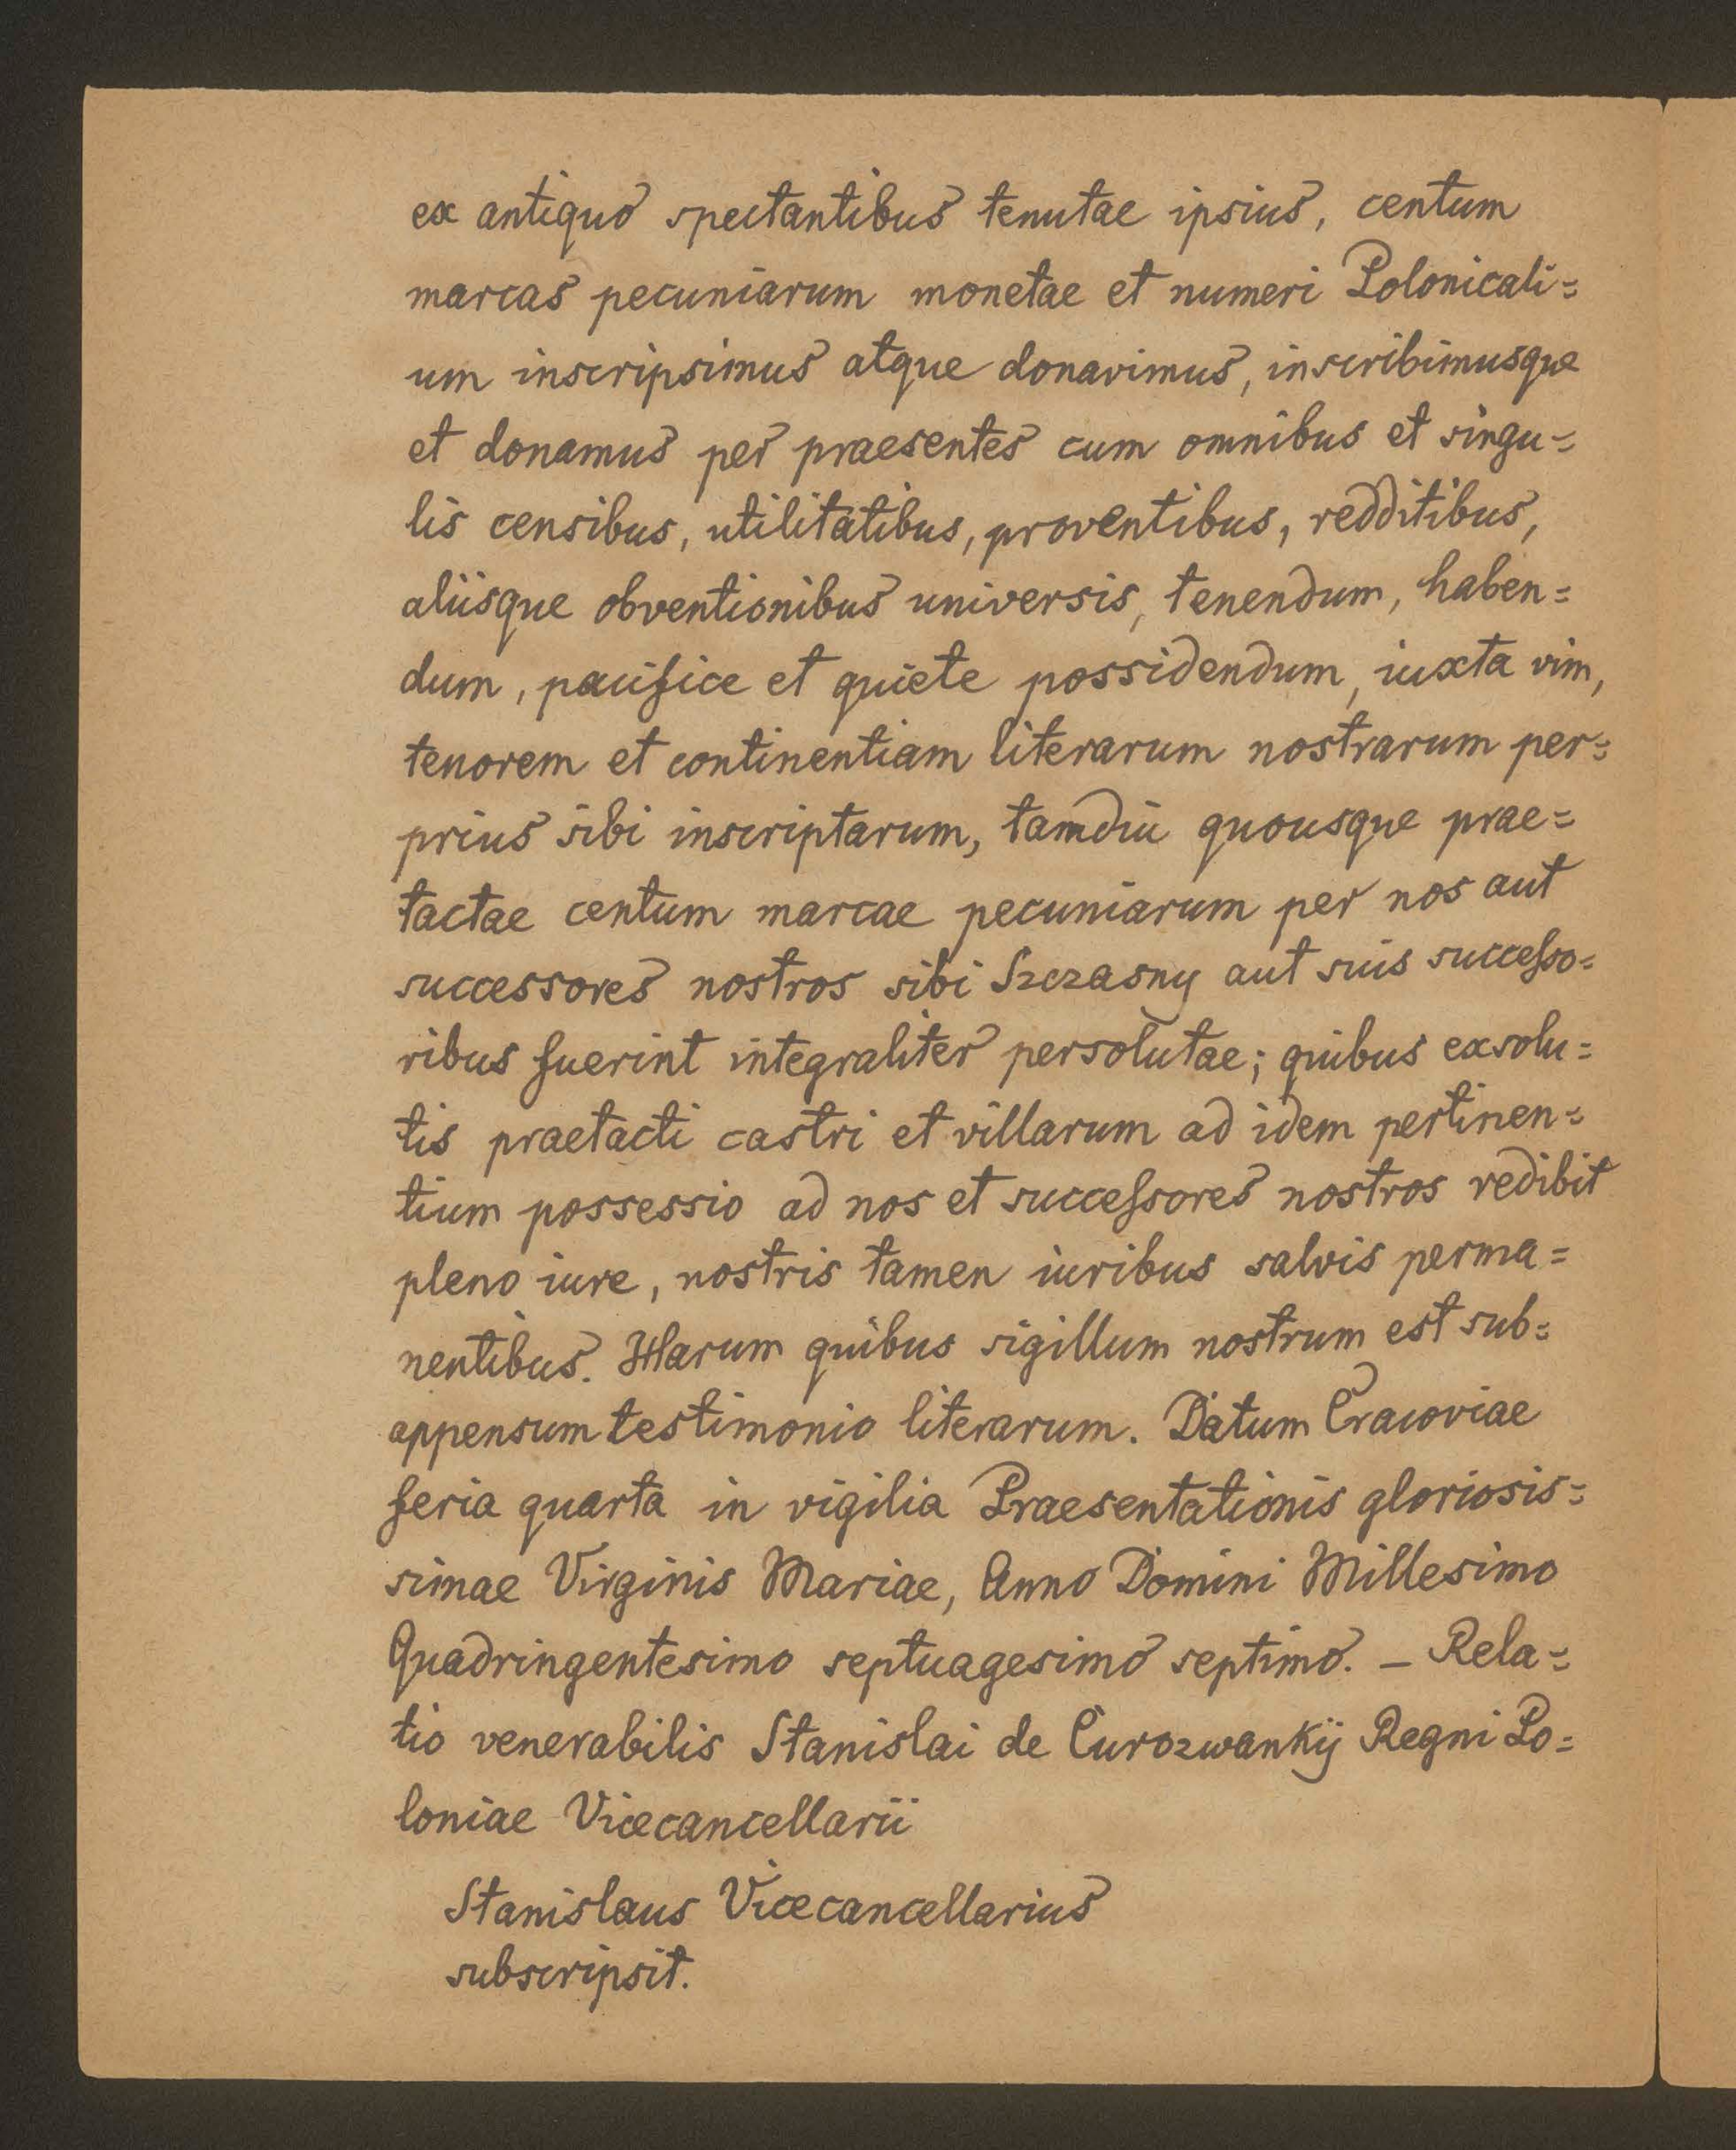 ex antiquo spectantibus tenutae ipsius, centum
marcas pecuniarum monetae et numeri Polonicali=
um inscripsimus atque donavimus, inscribimusque
et donamus per praesentes cum omnibus et singu=
lis censibus, utilitatibus, proventibus, redditibus,
aliisque obventionibus universis, tenendum, haben=
dum, pacifice et quiete possidendum, iuxta vim,
tenorem et continentiam literarum nostrarum per=
prius sibi inscriptarum, tamdiu quousque prae=
tactae centum marcae pecuniarum per nos aut
successores nostros sibi Szczasny aut suis successo=
ribus fuerint integraliter persolutae; quibus exsolu=
tis praetacti castri et villarum ad idem pertinen=
tium possessio ad nos et successores nostros redibit
pleno iure, nostris tamen iuribus salvis perma=
nentibus. Harum quibus sigillum nostrum est sub=
appensum testimonio literarum. Datum Cracoviae
feria quarta in vigilia Praesentationis gloriosis=
simae Virginis Mariae, Anno Domini Millesimo
Quadringentesimo septuagesimo septimo. – Rela=
tio venerabilis Stanislai de Curozwankij Regni Po=
loniae Vicecancellarii
Stanislaus Vicecancellarius
subscripsit.